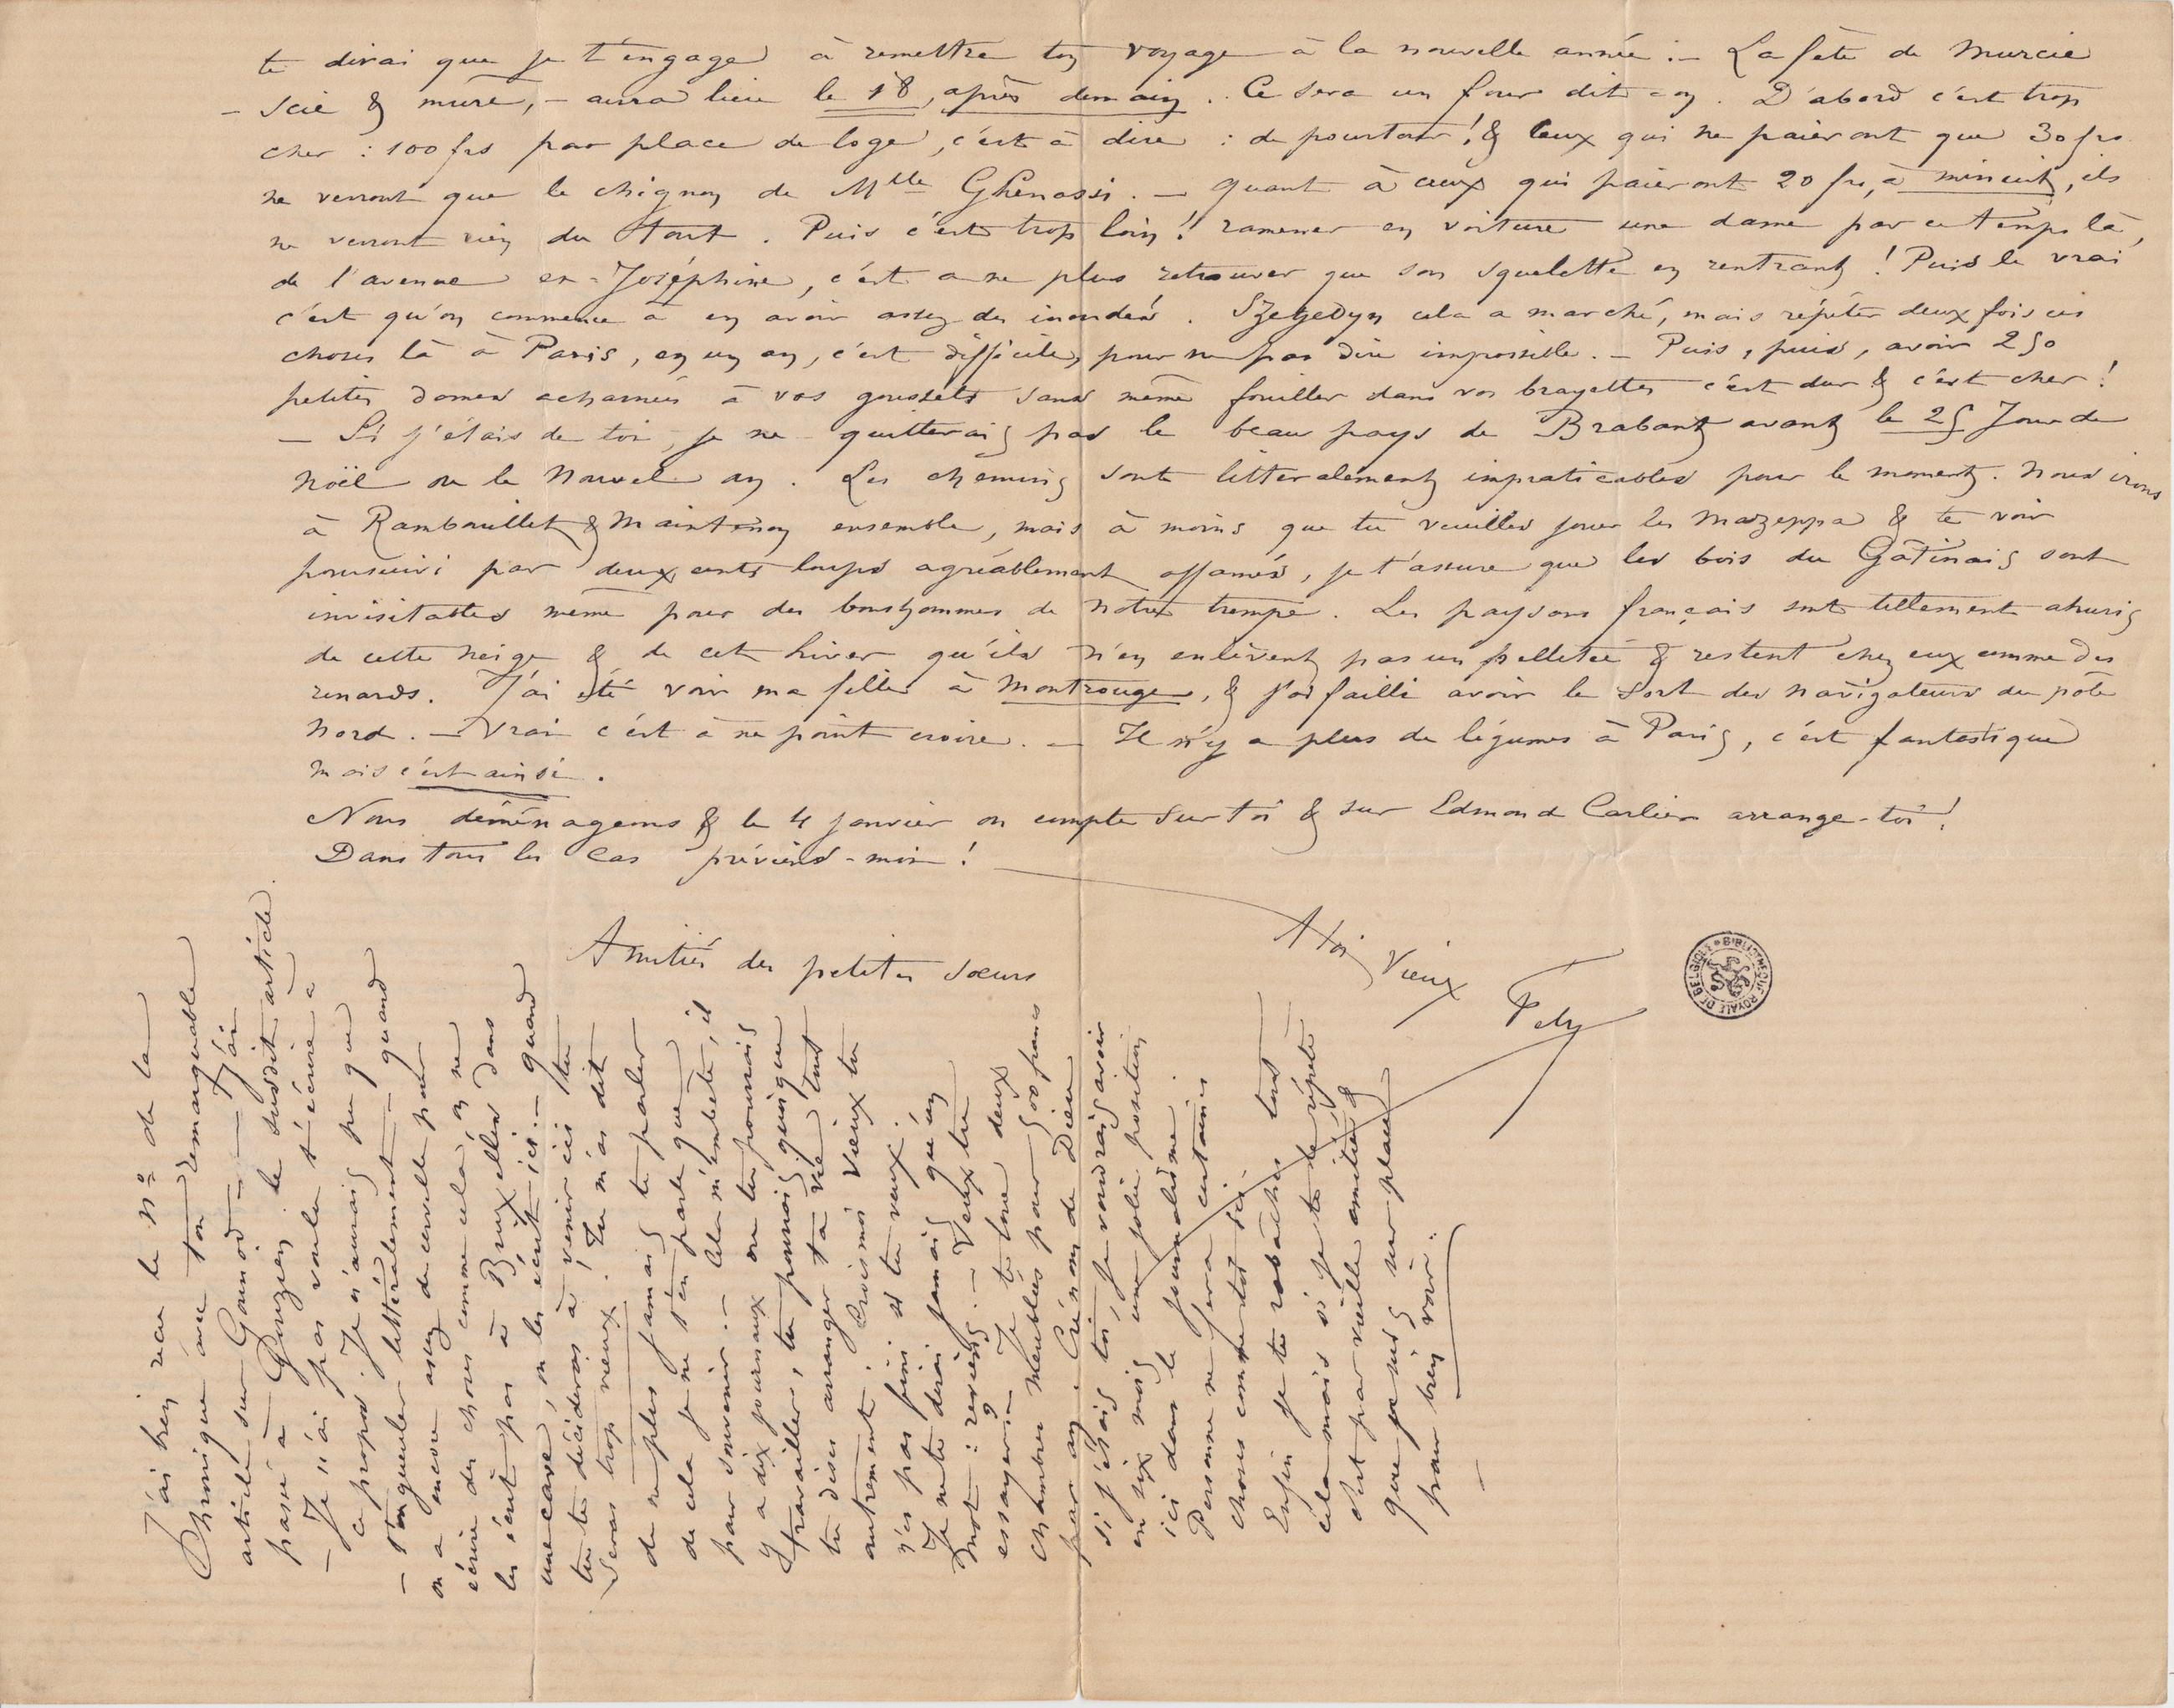 te dirai que je t'engage à remettre ton voyage à la nouvelle année :- La fête de Murcie
- scie & mure, - aura lieu le 18, après demain. Ce sera un four dit-on. D'abord c'est trop
cher : 100 frs par place de loge, c'est à dire : de pourtour ! & Ceux qui ne paieront que 30 frs
ne verront que le chignon de Mlle Ghenassi. - Quant à ceux qui paieront 20 frs, à minuit, ils
ne verront rien du tout. Puis c'est trop loin ! ramener en voiture une dame par ce temps là,
de l'avenue ex-Joséphine, c'est a ne plus retrouver que son squelette en rentrant ! Puis le vrai
c'est qu'on commence à en avoir assez des inondés. Szegedyn cela a marché, mais répéter deux fois ces
choses là à Paris, en un an, c'est difficile, pour ne pas dire impossible. - Puis, puis, avoir 250
petites dames acharnées à vos goussets sans même fouiller dans vos brayettes c'est dur & c'est cher !
- Si j'étais de toi, je ne quitterais pas le beau pays de Brabant avant le 25 Jour de
Noël ou le Nouvel an. Les chemins sont litteralement impraticables pour le moment. Nous irons
à Rambouillet & Maintenon ensemble, mais à moins que tu veuilles jouer les Mazeppa & te voir
poursuivi par deux cents loups agréablement affamés, je t'assure que les bois du Gâtinais sont
invisitables même pour des bonshommes de notre trempe. Les paysans français sont tellement ahuris
de cette neige & de cet hiver qu'ils n'en enlèvent pas un pelletée & restent chez eux comme des
renards. J'ai été voir ma fille à Montrouge, & j'ai failli avoir le sort des navigateurs du pôle
Nord. - Vrai c'est à ne point croire. - Il n'y a plus de légumes à Paris, c'est fantastique
mais c'est ainsi.
Nous déménageons & le 4 janvier on compte sur toi & sur Edmond Carlier arrange-toi !
Dans tous les Cas préviens-moi !
Amitiés des petites sœurs
A toi Vieux
Fely
BIBLIOTHEQUE ROYALE DE BELGIQUE
J'ai bien reçu le No de la
Chronique avec ton remarquable
article sur Gounod - J'ai
passé à le susdit article.
- Je n'ai pas voulu t'écrire à
ce propos. Je n'aurais pu que
- t'engueuler littéralement - quand
on a encore assez de cervelle pour
écrire des choses comme cela on ne
les écrit pas à Bruxelles dans
une cave, on les écrit ici. - quand
tu te décideras à venir ici tu
seras trop vieux. Tu m'as dit
de ne plus jamais te parler
de cela je ne t'en parle que
pour souvenir. - Cela m'embête, il
y a dix journaux où tu pourrais
travailler, tu pourrais quoique
tu dises arranger ta vie tout
autrement. Crois moi vieux tu
n'es pas fini si tu veux.
Je ne te dirai jamais qu'un
mot : reviens. - Veux tu
essayer ? Je te loue deux
chambres meublées pour 500 francs
par an. Cré nom de Dieu
si j'étais toi, je voudrais avoir
en six mois une jolie position
ici dans le journalisme.
Personne ne fera certaines
choses comme toi ici
Enfin je te rabâches tout
cela mais si je te le répète
c'est par vieille amitié &
que je suis sur place
pour bien voir.